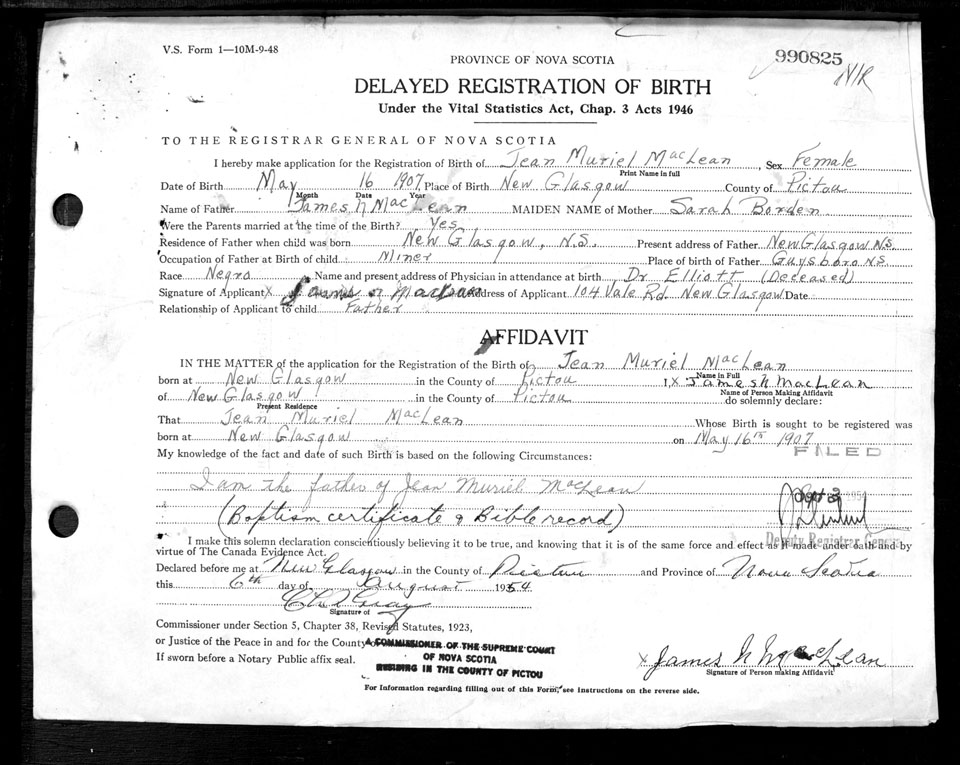 V.S. Form 1—10M-9-48
PROVINCE OF NOVA SCOTIA
990825
NIR
DELAYED REGISTRATION OF BIRTH
Under the Vital Statistics Act, Chap. 3 Acts 1946
TO THE REGISTRAR GENERAL OF NOVA SCOTIA
I hereby make application for the Registration of Birth of Jean Muriel MacLean Sex Female
Print Name in full
Date of Birth May 16 1907 Place of Birth New Glasgow County of Pictou
Month Date Year
Name of Father James N MacLean MAIDEN NAME of Mother Sarah Borden
Were the Parents married at the time of the Birth? Yes
Residence of Father when child was born New Glasgow, N.S. Present address of Father New Glasgow N.S.
Occupation of Father at Birth of child Miner Place of birth of Father Guysboro N.S.
Race Negro Name and present address of Physician in attendance at birth Dr Elliott (Deceased)
Signature of Applicant X James N MacLean Address of Applicant 104 Vale Rd. New Glasgow Date
Relationship of Applicant to child Father
AFFIDAVIT
IN THE MATTER of the application for the Registration of the Birth of Jean Muriel MacLean
Name in Full
born at New Glasgow in the County of Pictou I, X James N MacLean
Name of Person Making Affidavit
of New Glasgow in the County of Pictou do solemnly declare:
Present Residence
That Jean Muriel MacLean Whose Birth is sought to be registered was
born at New Glasgow on May 16th 1907
FILED
My knowledge of the fact and date of such Birth is based on the following Circumstances:
I am the father of Jean Muriel MacLean
Sept
(Baptism certificate & Bible record)
Deputy Registrar General
I make this solemn declaration conscientiously believing it to be true, and knowing that it is of the same force and effect as if made under oath and by
virtue of The Canada Evidence Act.
Declared before me at New Glasgow in the County of Pictou and Province of Nova Scotia
this 6th day of August 1954
Signature of
Commissioner under Section 5, Chapter 38, Revised Statutes, 1923,
or Justice of the Peace in and for the County of
A COMMISSIONER OF THE SUPREME COURT
OF NOVA SCOTIA
RESIDING IN THE COUNTY OF PICTOU
If sworn before a Notary Public affix seal.
X James N MacLean
Signature of Person making Affidavit
For Information regarding filling out of this Form, see instructions on the reverse side.